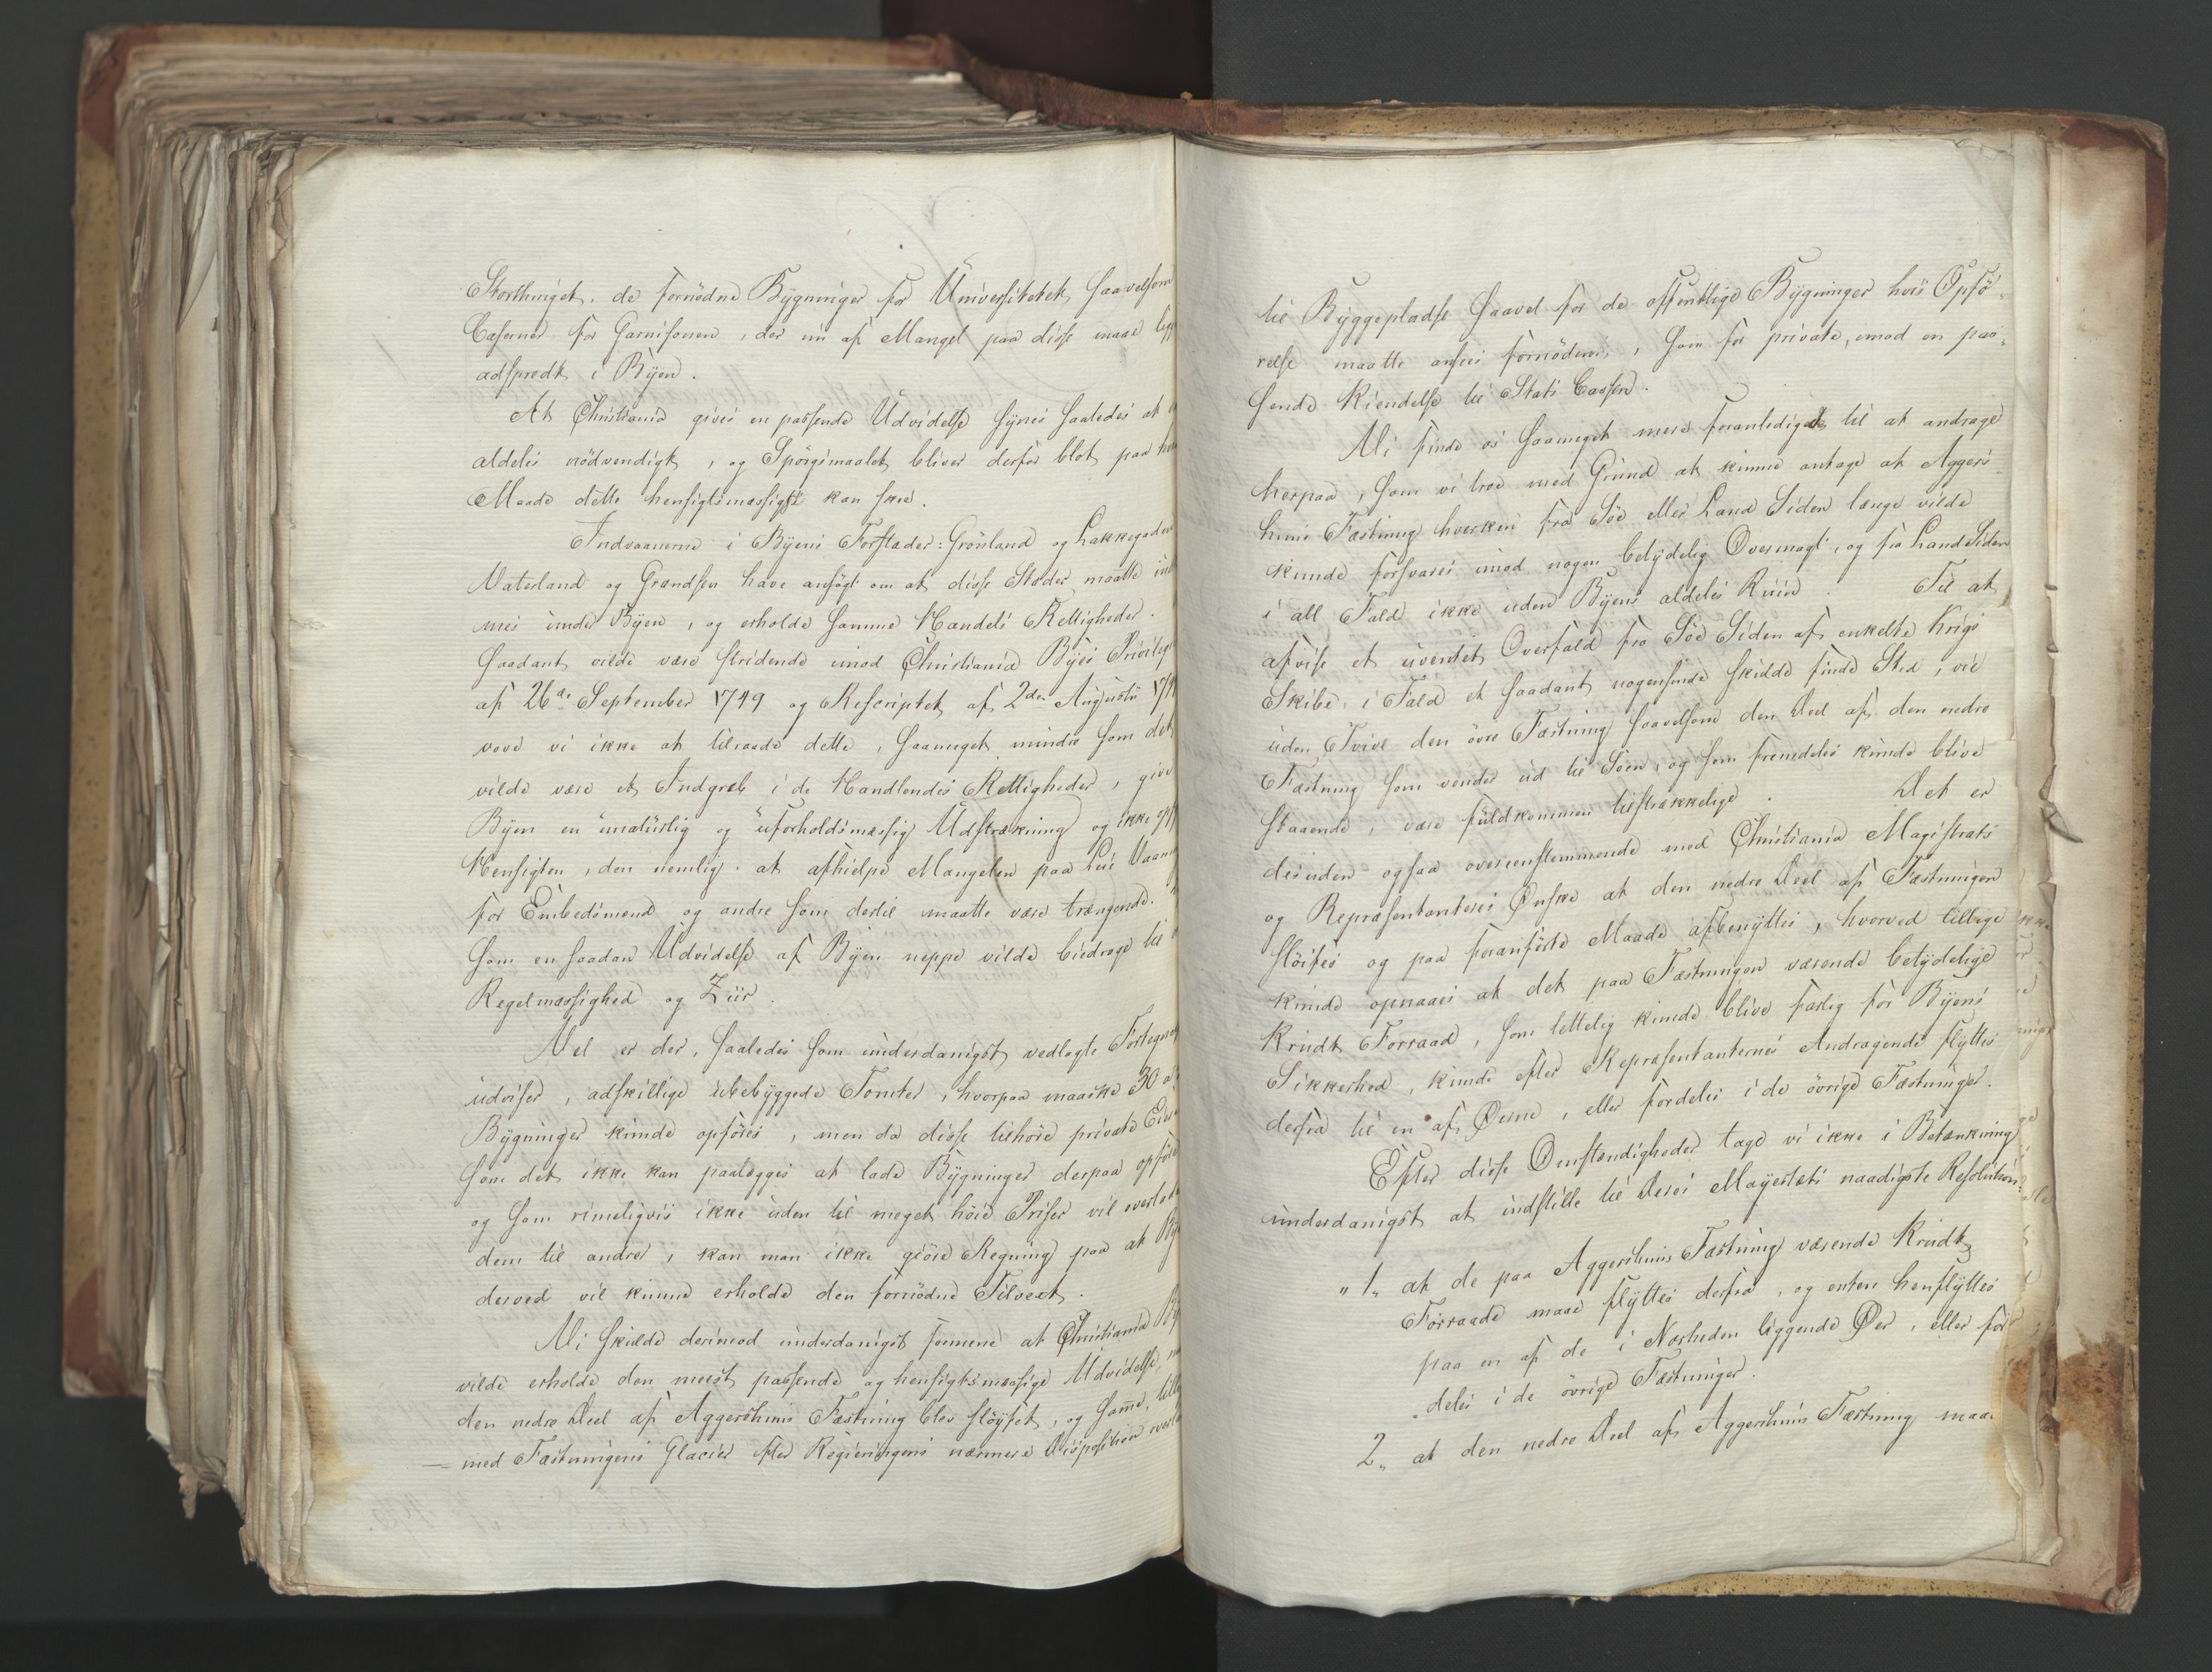 Storthinget, de fornödne Bygninger for Universitetet saavelsom
Caserner for Garnisonen, der nu af Mangel paa disse maae
adspredt i Byen.
At Christiania gives en passende Udvidelse synes saaledes at
aldeles nödvendigt, og Spörgsmaalet bliver derfor blot paa
Maade dette hensigtsmæssigst kan skee.
Indvaanerne i Byens Forstæder: Grönland og Lakkegaden
Vaterland og Grændsen have ansögt om at disse Stæder maatte
mes under Byen, og erholde samme Handels Rettigheder.
Saadant vilde være stridende imod Christiania Byes
af 26de September 1749 og Rescriptet af 2den Augustii
vove vi ikke at tilraade dette, saameget mindre som det
vilde være et Indgreb i de Handlendes Rettigheder, give
Byen en unaturlig og uforholdsmæssig Udstrækning og ikke
Hensigten, den nemlig: at afhielpe Mangelen paa Huus
for Embedsmænd og andre som dertil maatte være trængende.
som en saadan Udvidelse af Byen neppe vilde bidrage til
Regelmæssighed og Ziir.
Vel er der, saaledes som underdanigst vedlagte
udviser, adskillige ubebyggede Tomter, hvorpaa maaskee 30
Bygninger kunde opföres, men da disse tilhöre private
som det ikke kan paalægges at lade Bygninger derpaa
og som rimeligviis ikke uden til meget höie Priser vil
dem til andre, kan man ikke giöre Regning paa at
derved vil kunne erholde den fornödne Tilvext.
Vi skulde derimod underdanigst formene at Christiania
vilde erholde den meest passende og hensigtsmæssige Udvidelse,
den nedre Deel af Aggershuus Fæstning blev slöyfet, og samme,
med Fæstningens Glacier efter Regieringens nærmere Disposition
til Byggepladse saavel for de offentlige Bygninger hvis Opfö-
relse maatte ansees fornöden, som for private, imod en pas-
sende Kiendelse til Stats Cassen.
Vi finde os saameget mere foranlediget til at andrage
herpaa, som vi troe med Grund at kunne antage at Aggers-
huus Fæstning hverken fra Söe eller Land Siden længe vilde
kunde forsvares imod nogen betydelig Overmagt, og fra Landsiden
i all Fald ikke uden Byens aldeles Ruin. Til at
afvise et uventet Overfald fra Söe Siden af enkelte Krigs
Skibe, i Fald et saadant nogensinde skulde finde Sted, vil
uden Tvivl den övre Fæstning saavelsom den Deel af den nedre
Fæstning som vender ud til Söen, og som fremdeles kunde blive
staaende, være fuldkommen tilstrækkelige. Det er
desuden ogsaa overeenstemmende med Christiania Magistrats
og Repræsentanteres Önske at den nedre Deel af Fæstningen
slöifes og paa foranförte Maade afbenyttes, hvorved tillige
kunde opnaaes at det paa Fæstningen værende betydelige
Krudt Forraad, som lettelig kunde blive farlig for Byens
Sikkerhed, kunde efter Repræsentanternes Andragende flyttes
derfra til en af Öerne, eller fordeles i de övrige Fæstninger.
Efter disse Omstændigheder tage vi ikke i Betænkning
underdanigst at indstille til Deres Mayestæts naadigste Resolution:
" 1, at de paa Aggershuus Fæstning værende Krudt
Forraade maae flyttes derfra, og enten henflyttes
paa en af de i Nærheden liggende Öer, eller for-
deles i de övrige Fæstninger.
2, at den nedre Deel af Aggershuus Fæstning maae